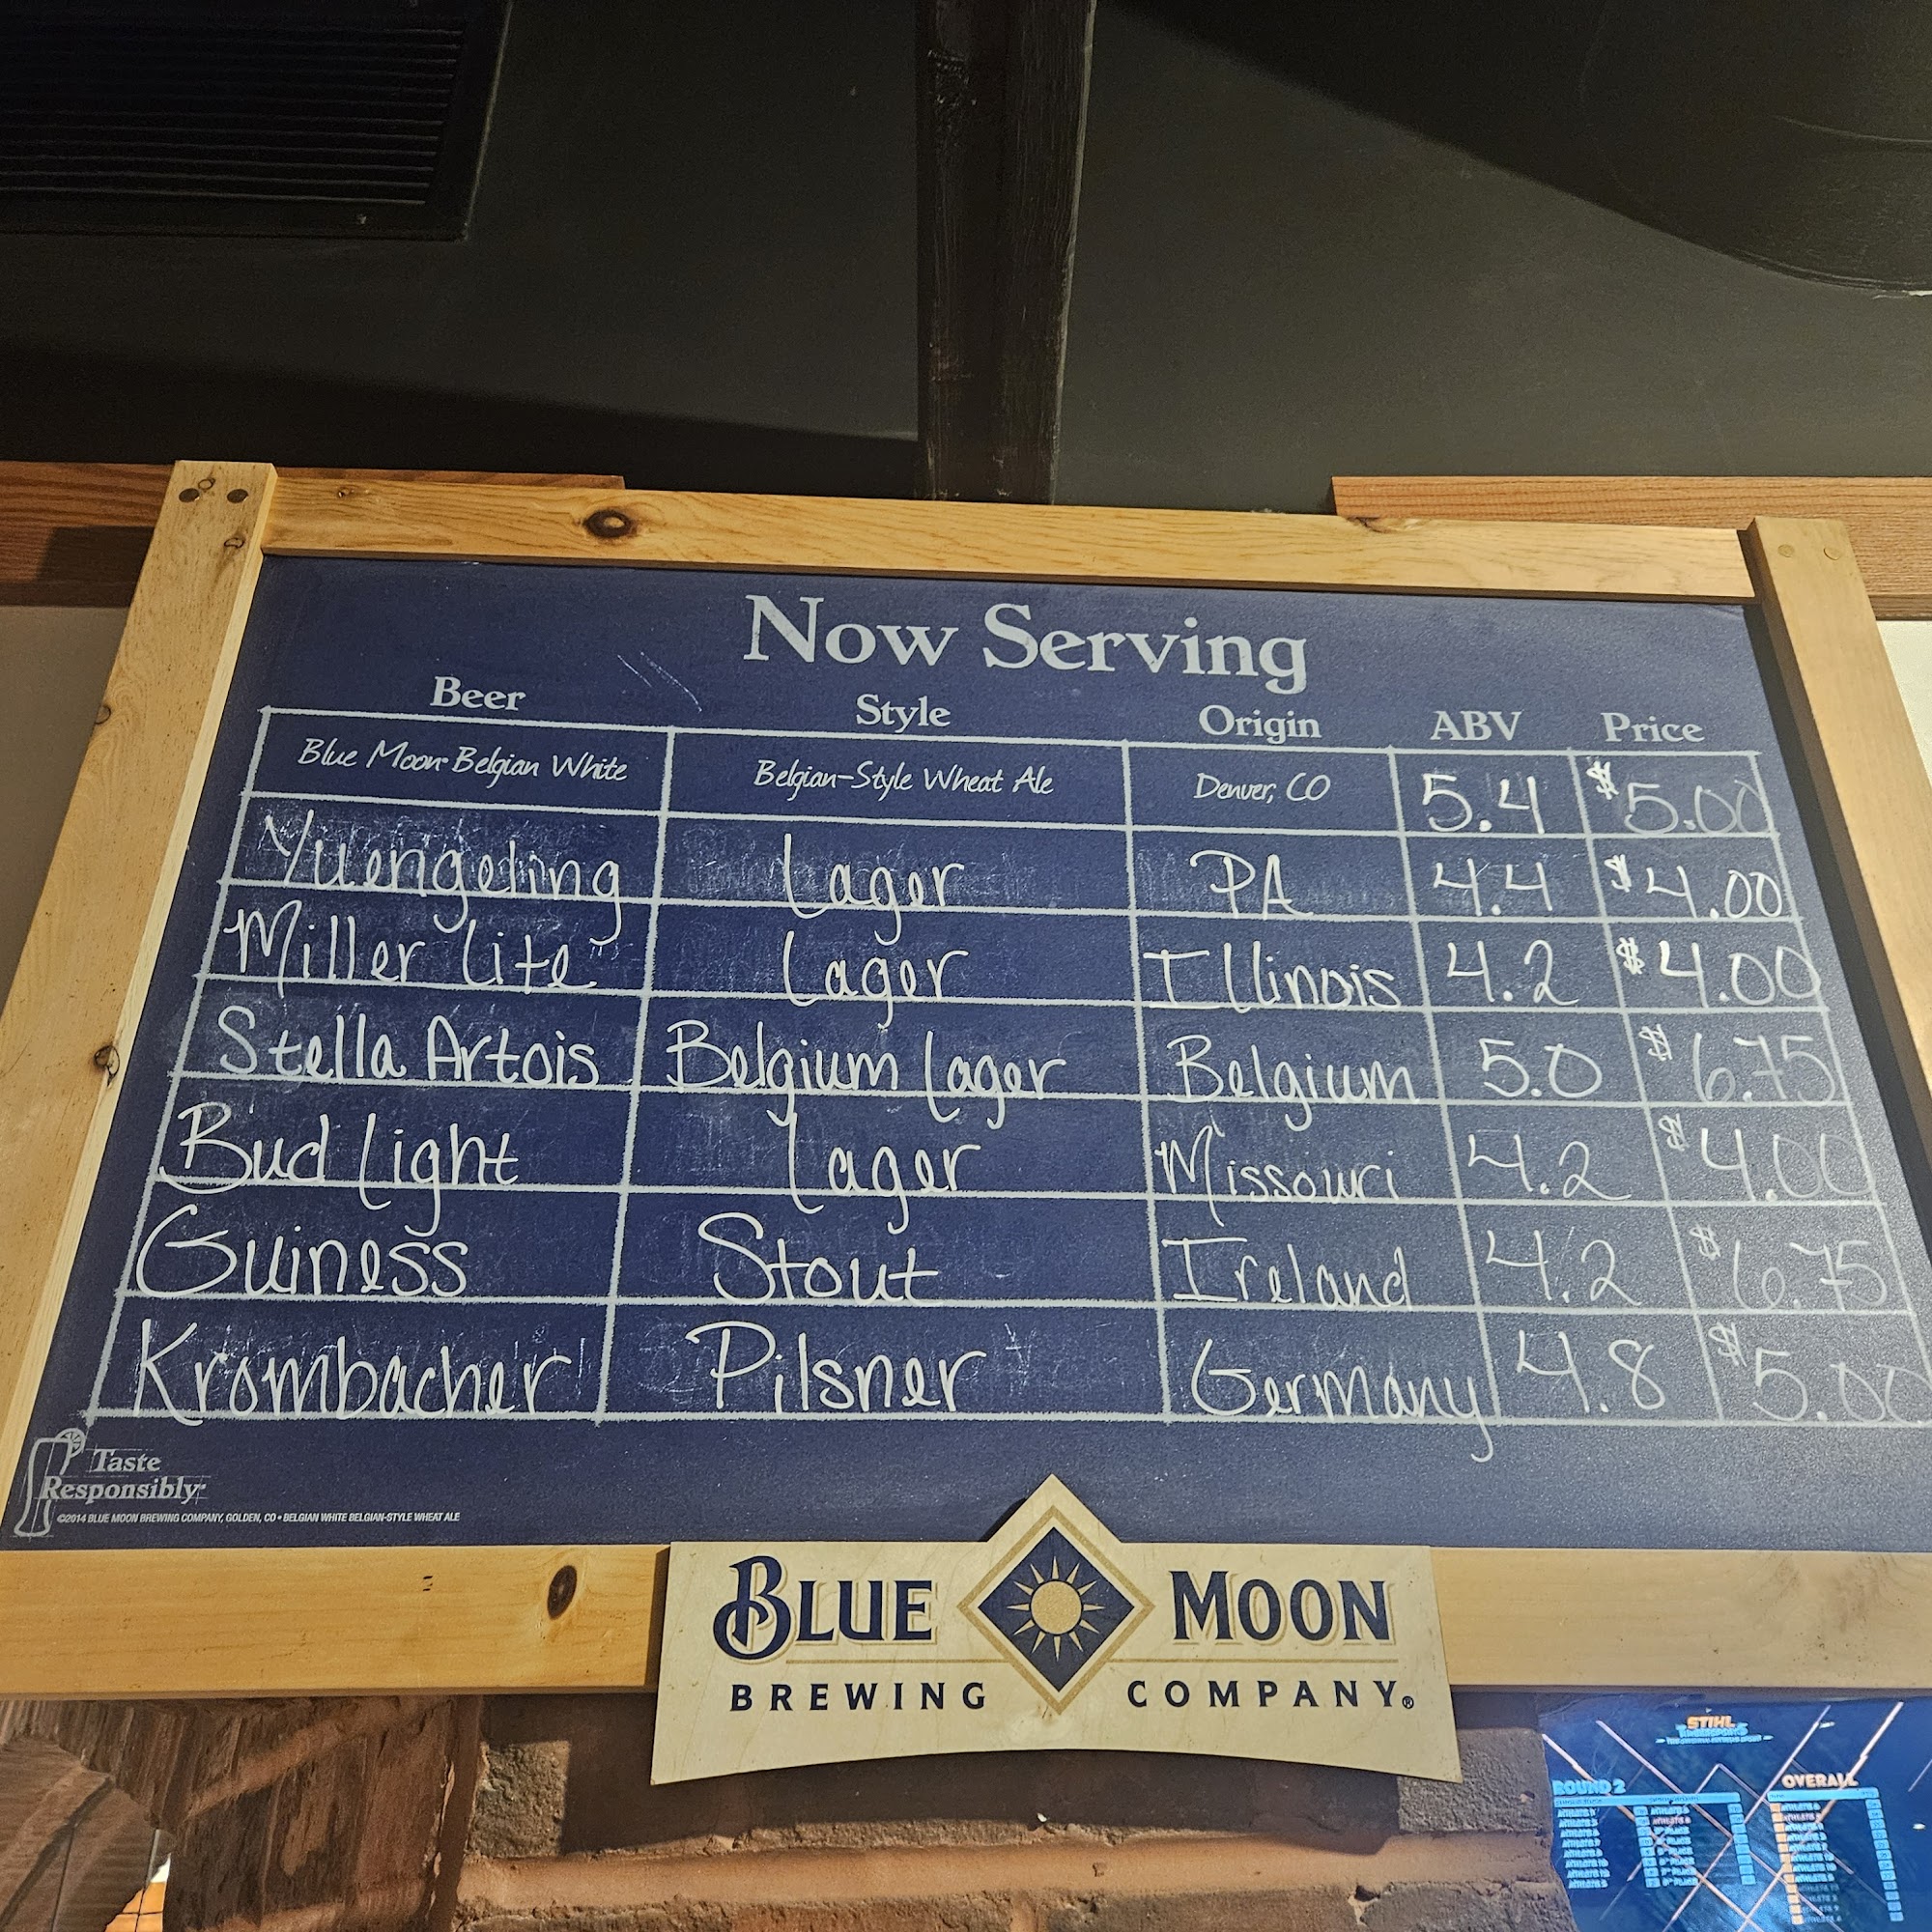 Now Serving
Beer Style Origin ABV Price
Blue Moon Belgian White Belgian-Style Wheat Ale Denver, CO 5.4 $5.00
Yuengeling Lager PA 4.4 $4.00
Miller Lite Lager Illinois 4.2 $4.00
Stella Artois Belgium Lager Belgium 5.0 $6.75
Bud Light Lager Missouri 4.2 $4.00
Guiness Stout Ireland 4.2 $6.75
Krombacher Pilsner Germany 4.8 $5.00
Taste
Responsibly
©2014 BLUE MOON BREWING COMPANY, GOLDEN, CO • BELGIAN WHITE BELGIAN-STYLE WHEAT ALE
BLUE MOON
BREWING COMPANY®
STIHL
TIMBERSPORTS
ROUND 2 OVERALL